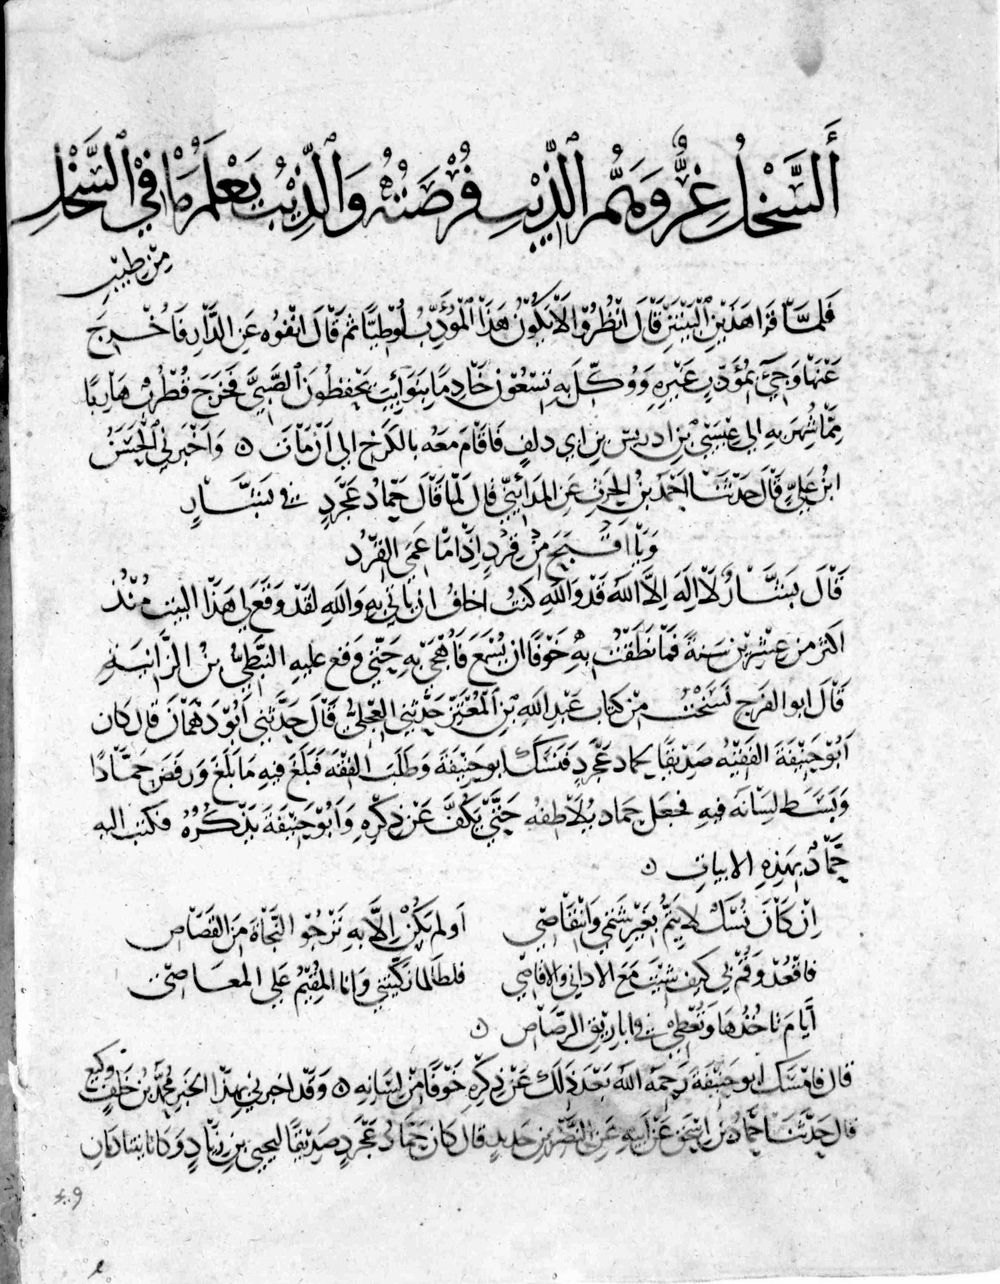 أَلسَّخْلُ غِرٌّ وَهَمُّ الذِّيْبِ فُرْصَتُهُ وَالذِّيْبُ يَعْلَمُ مَا فِي السَّخْلِ
مِنْ طِيْبِ
فَلَمَّا قَرَا هَذَيْنِ الْبَيْتَيْنِ قَالَ انْظُرُوْا لَا يَكُوْنُ هَذَا الْمُؤَدِّبُ لُوْطِيًّا ثم قَالَ انْفُوْه عَنِ الدَّارِ فَأُخْرِجَ
عَنْهَا وَجِيَ بِمُؤَدِّبٍ غَيْرِهِ وَوُكِّلَ بِهِ تِسْعُوْنَ خَادِمًا يَتَوَابُ يَحْفَظُوْنَ الصَّبِيَّ فَخَرَجَ قُطْرُبٌ هَارِبًا
مِمَّا شُهِرَ بِهِ الى عِيْسَى بْنِ ادريْسَ بن ابي دلفٍ فَاقَامَ معَه بالكَرَخِ الى أنْ مَاتَ ۞ وَاخْبَرنِي الْحَسَنُ
ابْنُ عَلِيٍّ قَالَ حَدَّثَنَا احْمَدُ بنُ الحرث عَنِ المدَائِنِيّ قالَ لَمَّا قَالَ حَمَّادُ عَجْرَدٍ في بَشَّارٍ
وَيَا اقْبَحَ مِنْ قِرْدٍ اِذَا مَا عَمِيَ القِرْدُ
قَالَ بَشَّارٌ لَا اِلَهَ اِلَّا اللهَ قَدْ وَاللهِ كنْتُ اخَافُ ان يَاتِي بِهِ وَاللهِ لقَدْ وَقَعَ لي هَذَا البَيْتُ مُنْذُ
اكثرَ مِن عِشْرِيْنَ سَنَةً فَمَا نَطَقْتُ بِهِ خَوْفًا ان يُسْمَعَ فَاُهْجَى بِهِ حَتَّى وَقَعَ عَلَيهِ النَّبَطِيُّ بنُ الزَّانِيَةِ
قَالَ ابو الفَرَجِ نَسَخْتُ مِنْ كِتَابِ عَبْدِ اللهِ بْنِ المُعْتَزِّ حَدَّثَنِي العِجْلِيُّ قَالَ حَدَّثَنِي أَبُوْ دَهْمَانَ قال كان
أَبُوْ حَنِيْفَةَ الفَقِيْهُ صَدِيْقًا لحماد عَجْرَدٍ فَنَسَكَ ابو حَنِيْفَةَ وَطَلَبَ الفِقْهَ فَبَلَغَ فيهِ مَا بَلَغَ وَرَفَضَ حَمَّادًا
وَبَسَطَ لِسَانَه فيهِ فجَعَلَ حَمَّاد يُلَاطِفهُ حَتَّى يَكُفَّ عَنْ ذِكْرِهِ وَأَبُوْ حَنِيْفَةَ يَذْكُرُهُ فكتَبَ اليهِ
حَمَّادٌ بِهَذِهِ الابياتِ ۞
اِنْ كَانَ نُسْكُكَ لا يَتِمُّ بِغَيْرِ شَتْمِي وَانْتِقَاصِي اَو لم تَكُنْ اِلَّا بِهِ تَرْجُو النَّجَاةَ مِنَ القَصَاصِ
فاقْعُدْ وَقُمْ بِي كيفَ شِيْتَ مَعَ الادَانِي وَالاقَاصِي فلطَالَمَا زَكَّيْتَنِي وَانا المُقِيْمُ عَلَى المعَاصِي
أَيَّامَ تَاخُذُهَا وَتُعْطِي فِي ابَارِيْقِ الرَّصَاصِ ۞
قال فامْسَكَ ابو حَنِيْفَةَ رَحِمَهُ اللهُ بَعْدَ ذَلِكَ عَنْ ذِكْرِهِ خَوْفًا مِنْ لِسَانِهِ ۞ وَقَد اخبرني بِهذَا الخَبَرِ مُحَمَّدُ بنُ خَلَفٍ وَكِيْع
قال حَدَّثَنَا حَمَّادُ بن اسْحَقَ عَنْ ابيهِ عَنِ النَّضْرِ بن حَدِيدٍ قال كان حَمَّادُ عَجْرَدٍ صَدِيْقًا لِيَحْيى بن زِيَادٍ وَكانا يتنادمانِ